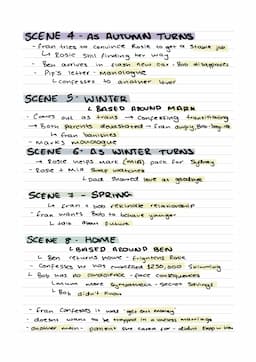 SCENE 4 - AS AUTUMN TURNS
- Fran tries to convince Rosie to get a stable job
↳ Rosie still finding her way
- Ben arrives in flash new car - Bob disapproves
- Pip's letter - Monologue
↳ confesses to another lover
SCENE 5 - WINTER
↳ BASED AROUND MARK
- Comes out as trans → confessing transitioning
→ Both parents devastated → Fran
↳ Fran banishes
- Mark's monologue
SCENE 6 - AS WINTER TURNS
- Rosie helps Mark (Mia) pack for Sydney
- Rosie + Mia swap watches
↳ Dad showed love at goodbye
SCENE 7 - SPRING
↳ Fran + Bob rekindle relationship
- Fran wants Bob to behave younger
↳ talk about future
SCENE 8 - HOME
↳ BASED AROUND BEN
- Ben returns home - frightens Rosie
- Confesses he was embezzled $250,000 skimming
↳ Bob has no condolence - face consequences
↳ more sympathetic - secret savings
↳ Bob didn't know
- Fran confesses it was 'get out money'
- doesn't want to be trapped in a loveless marriage
- another man - patient she cared for -